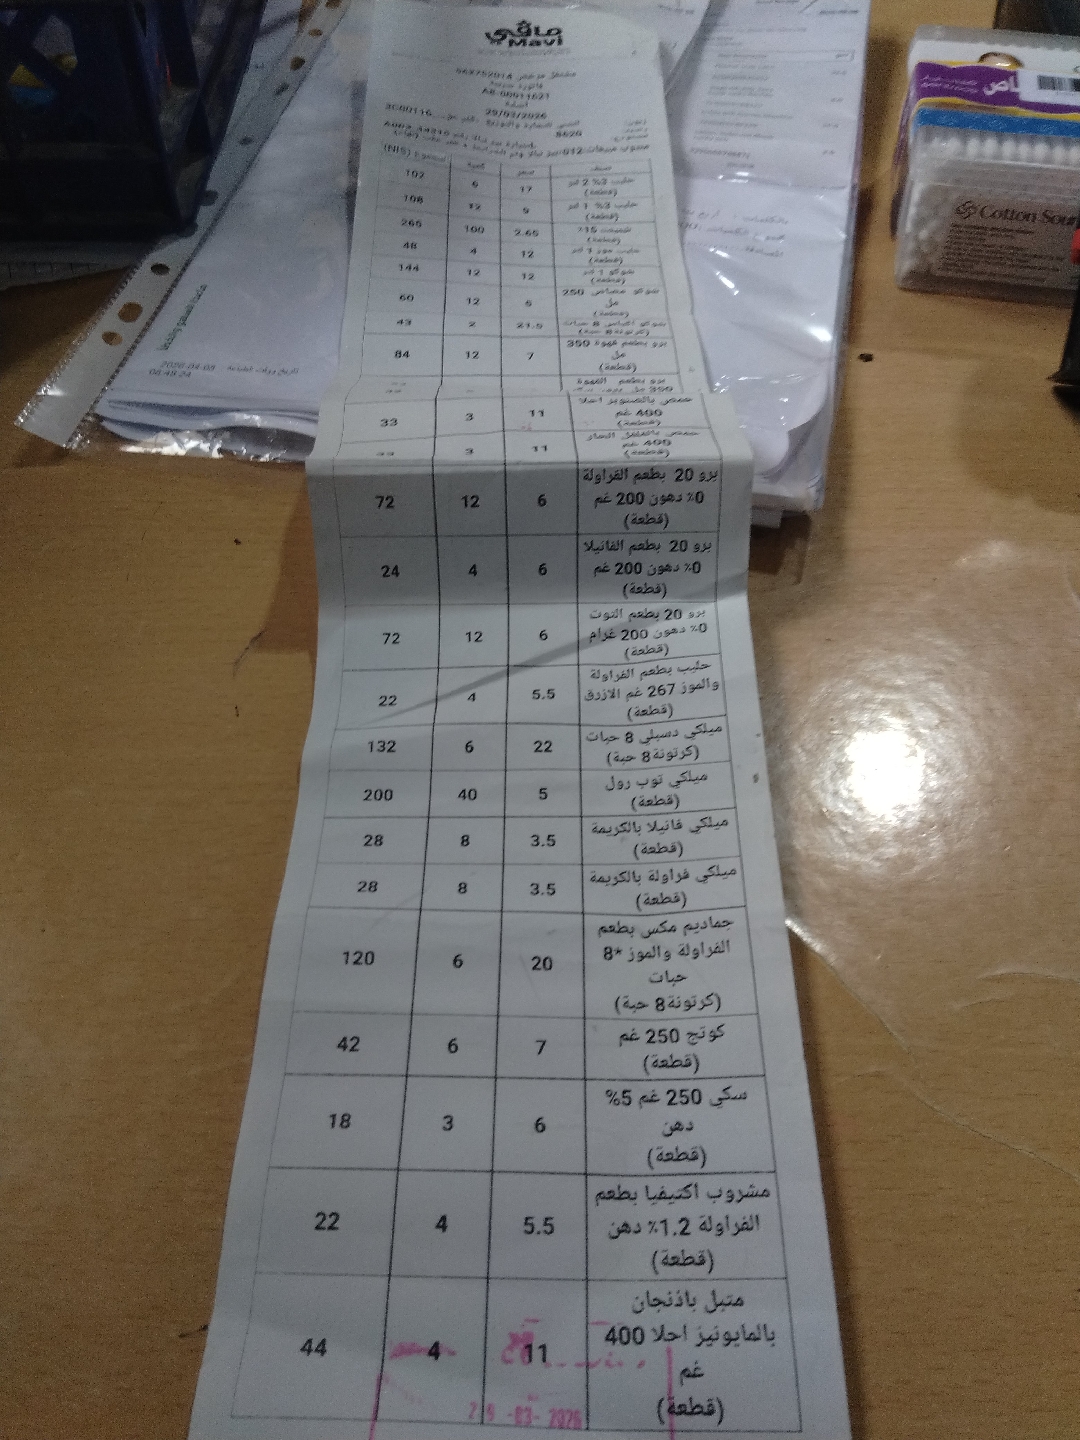 مافي
Mavi
مشتغل مرخص 562752014
فاتورة ضريبية
AB-00011621
29/03/2026
3C00116
8620
(NIS)
صنف سعر كمية
حليب 3% 2 لتر
(قطعة) 17 6 102
حليب 3% 1 لتر
(قطعة) 9 12 108
15%
(قطعة) 2.65 100 265
حليب موز 1 لتر
(قطعة) 12 4 48
شوكو 1 لتر
(قطعة) 12 12 144
شوكو مصاص 250
مل
(قطعة) 5 12 60
شوكو اكياس 8 حبات
(كرتونة8 حبة) 21.5 2 43
برو بطعم قهوة 350
مل
(قطعة) 7 12 84
برو بطعم القهوة
حمص بالصنوبر احلا
400 غم
(قطعة) 11 3 33
حمص بالفلفل الحار
400 غم
(قطعة) 11 3 33
برو 20 بطعم الفراولة
0% دهون 200 غم
(قطعة) 6 12 72
برو 20 بطعم الفانيلا
0% دهون 200 غم
(قطعة) 6 4 24
برو 20 بطعم التوت
0% دهون 200 غرام
(قطعة) 6 12 72
حليب بطعم الفراولة
والموز 267 غم الازرق
(قطعة) 5.5 4 22
ميلكي دسبلي 8 حبات
(كرتونة8 حبة) 22 6 132
ميلكي توب رول
(قطعة) 5 40 200
ميلكي فانيلا بالكريمة
(قطعة) 3.5 8 28
ميلكي فراولة بالكريمة
(قطعة) 3.5 8 28
جماديم مكس بطعم
الفراولة والموز *8
حبات
(كرتونة8 حبة) 20 6 120
كوتج 250 غم
(قطعة) 7 6 42
سكي 250 غم 5%
دهن
(قطعة) 6 3 18
مشروب اكتيفيا بطعم
الفراولة 1.2% دهن
(قطعة) 5.5 4 22
متبل باذنجان
بالمايونيز احلا 400
غم
(قطعة) 11 4 44
29 -03- 2026
تاريخ ووقت الطباعة 2026-04-03
08:49:24
Cotton Sour